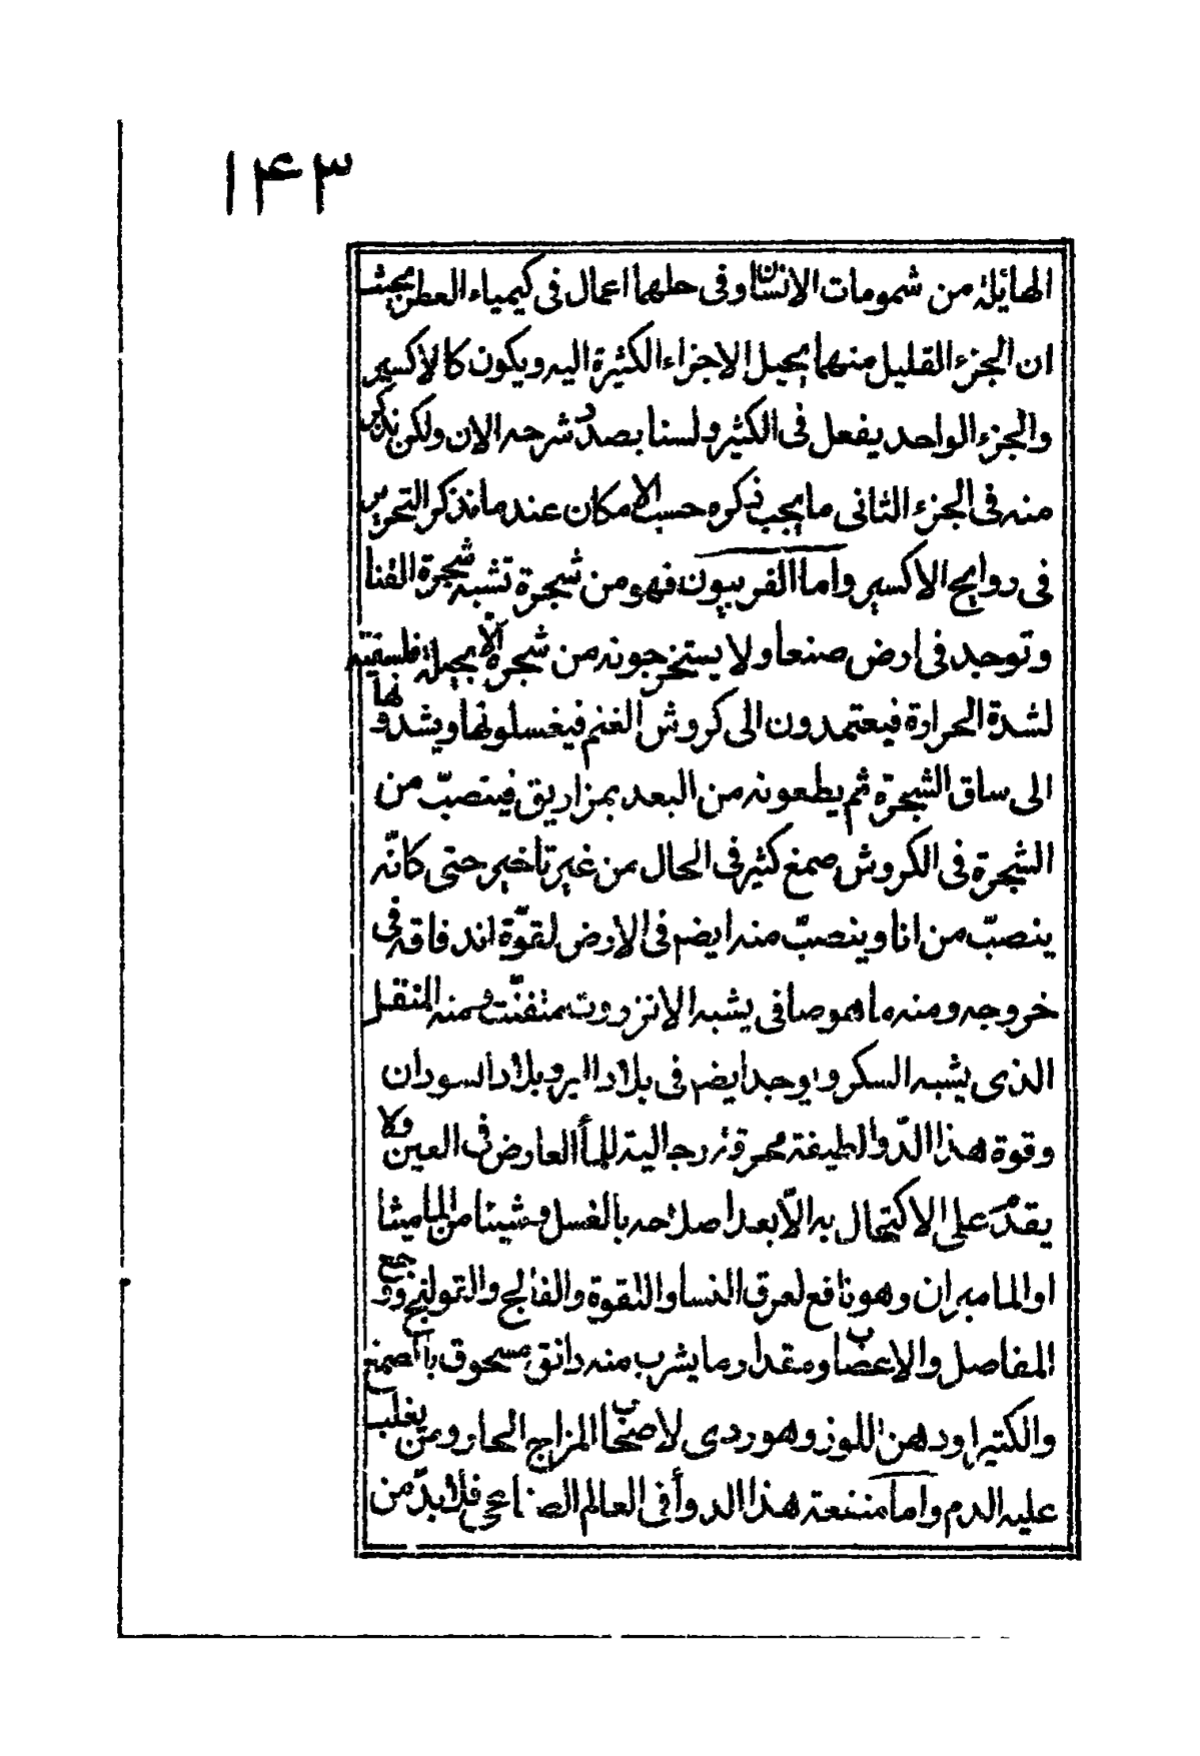 ۱۴۳
الهائلة من شمومات الانسان وفى حلهما اعمال فى كيمياء العطر بحيث
ان الجزء القليل منهما يحيل الاجزاء الكثيرة اليه ويكون كالاكسير
والجزء الواحد يفعل فى الكثير ولسنا بصدد شرحه الان ولكن نذكر
منه فى الجزء الثانى ما يجب ذكره حسب الامكان عند ما نذكر التحرير
فى روايح الاكسير واما الفربيون فهو من شجرة تشبه شجرة القنا
وتوجد فى ارض صنعا ولا يستخرجونه من شجرة الا بحيلة فلسفية
لشدة الحرارة فيعتمدون الى كروش الغنم فيغسلونها ويشدونها
الى ساق الشجرة ثم يطعونه من البعد بمزاريق فينصبّ من
الشجرة فى الكروش صمغ كثير فى الحال من غير تاخير حتى كانّه
ينصبّ من انا وينصبّ منه ايضم فى الارض لقوّة اندفاقه فى
خروجه ومنه ما هو صافى يشبه الانزروت متفتّت ومنه المنقل
الذى يشبه السكر ويوجد ايضم فى بلاد البر وبلاد السودان
وقوة هذا الدّوا لطيفة محرقة جالية للمأ العارض فى العين ولا
يقدر على الاكتحال به الّا بعد اصلاحه بالغسل وشيئا من الماميثا
او المامبران وهو نافع لعرق النسا واللقوة والفالج والقولنج ووجع
المفاصل والاعضا ومقدار ما يشرب منه دانق مسحوق بالصمغ
والكتيرا ودهن اللوز وهو ردى لاصحاب المزاج الحار ومن يغلب
عليه الدم واما منفعة هذا الدوأ فى العالم الصناعى فلا بدّ من